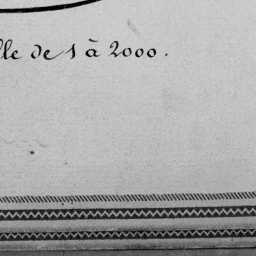 lle de 1 à 2000.